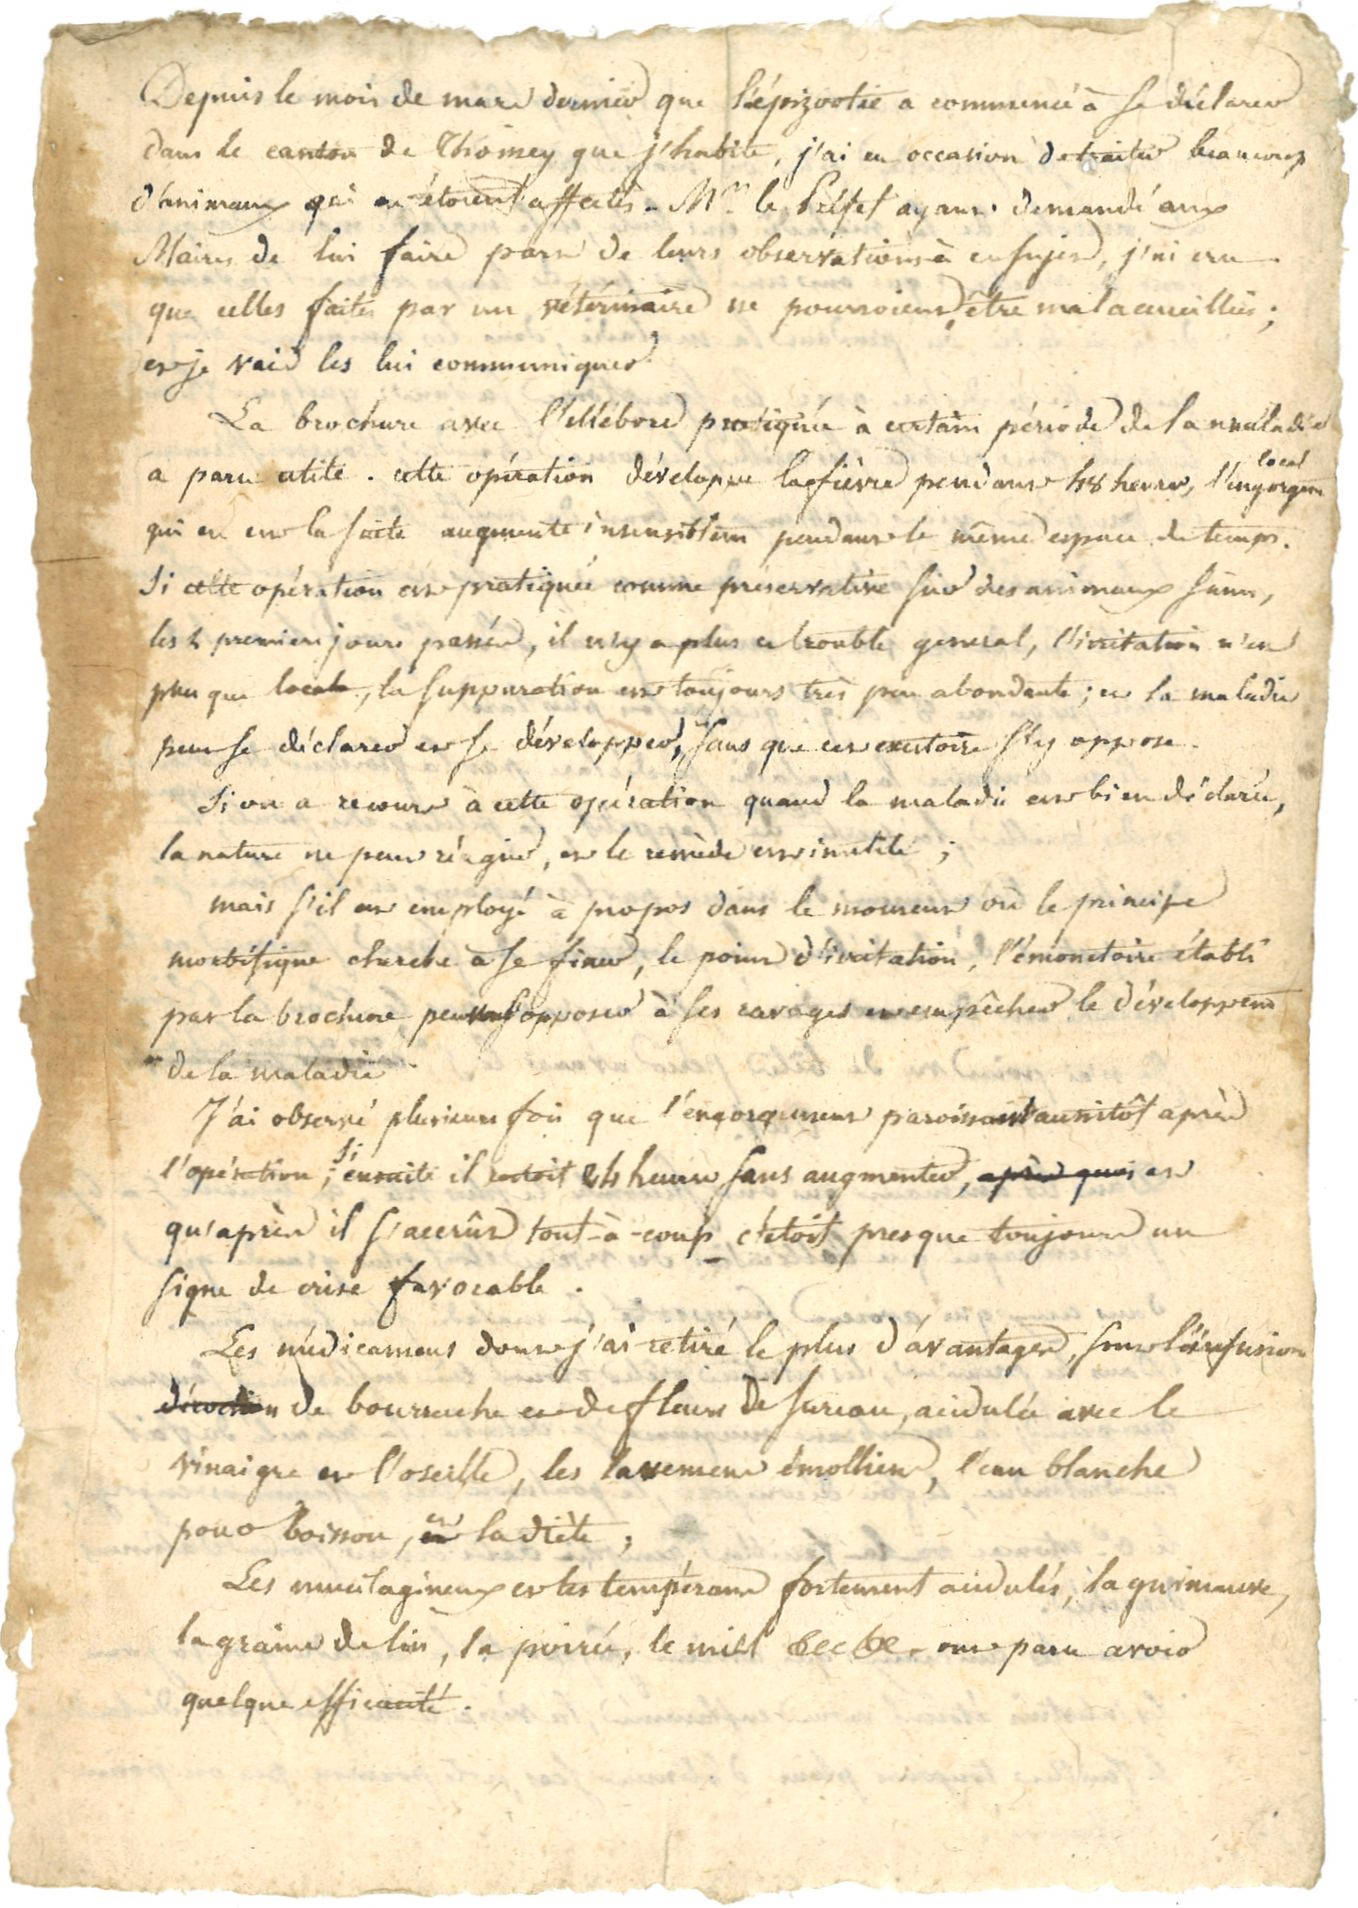 Depuis le mois de mars dernier que l'épizootie a commencé à se déclarer
dans le canton de Thomey que j'habite, j'ai eu occasion de traiter beaucoup
d'animaux qui en étoient affectés. Mr. le Préfet ayant demandé aux
Maires de lui faire part de leurs observations à ce sujet, j'ai cru
que celles faites par un vétérinaire ne pourroient être mal accueillies;
et je vais les lui communiquer
La brochure avec l'ellébore pratiquée à certain période de la maladie
a paru utile. cette opération développe la fièvre pendant 48 heures, l'engorgem local
qui en est la suite augmente insensiblem pendant le même espace de temps.
Si cette opération est pratiquée comme préservative sur des animaux sains,
les 2 premiers jours passés, il n'y a plus de trouble general, l'irritation n'est
plus que locale, la suppuration est toujours très peu abondante; et la maladie
peut se déclarer et se développer, sans que cet exutoire s'y oppose.
Si on a recours à cette opération quand la maladie est bien déclarée,
la nature ne peut réagir, et le remède est inutile;
mais s'il est employé à propos dans le moment où le principe
morbifique cherche à se fixer, le point d'irritation, l'émonctoire établi
par la brochure peuvent s'opposer à ses ravages et empêcher le développem
de la maladie
J'ai observé plusieurs fois que l'engorgement paroissant aussitôt après
l'opération; si ensuite il restoit 24 heures sans augmenter, après quoi et
qu'après il s'accrût tout-à-coup c'étoit presque toujours un
signe de crise favorable.
Les médicamens dont j'ai retiré le plus d'avantages, sont l'infusion
décoction de bourrache et de fleurs de sureau, acidulée avec le
vinaigre et l'oseille, les lavemens émolliens, l'eau blanche
pour boisson, et la diète;
Les mucilagineux et les tempérans fortement acidulés, la guimauve,
la graine de lin, la poirée, le miel &c &c. ont paru avoir
quelque efficacité.